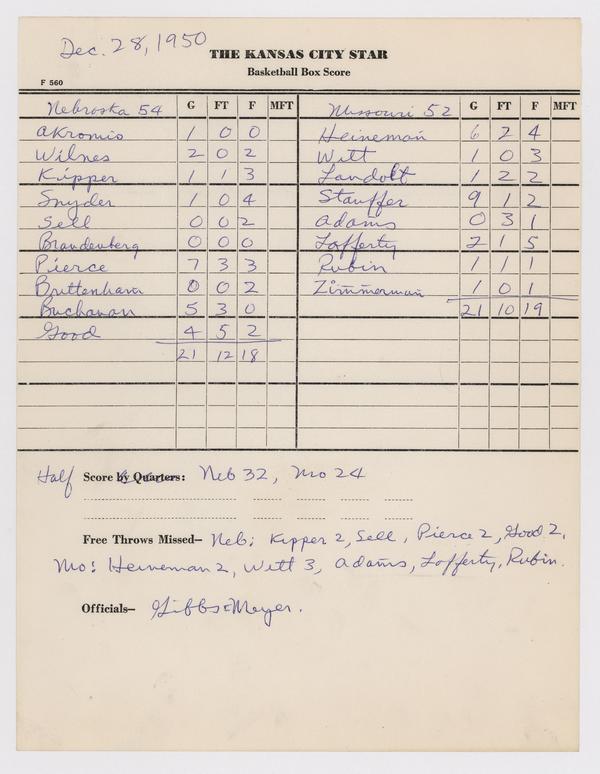 Dec. 28, 1950
THE KANSAS CITY STAR
Basketball Box Score
F 560
Nebraska 54 G FT F MFT Missouri 52 G FT F MFT
Akromis 1 0 0 Heineman 6 2 4
Wilnes 2 0 2 Witt 1 0 3
Kipper 1 1 3 Landolt 1 2 2
Snyder 1 0 4 Stauffer 9 1 2
Sell 0 0 2 Adams 0 3 1
Brandenberg 0 0 0 Lafferty 2 1 5
Pierce 7 3 3 Rubin 1 1 1
Buttenham 0 0 2 Zimmerman 1 0 1
Buchanan 5 3 0 21 10 19
Good 4 5 2
21 12 18
Half Score by Quarters: Neb 32, Mo 24
Free Throws Missed— Neb: Kipper 2, Sell, Pierce 2, Good 2,
Mo: Heineman 2, Witt 3, Adams, Lafferty, Rubin.
Officials— Gibbs & Meyer.